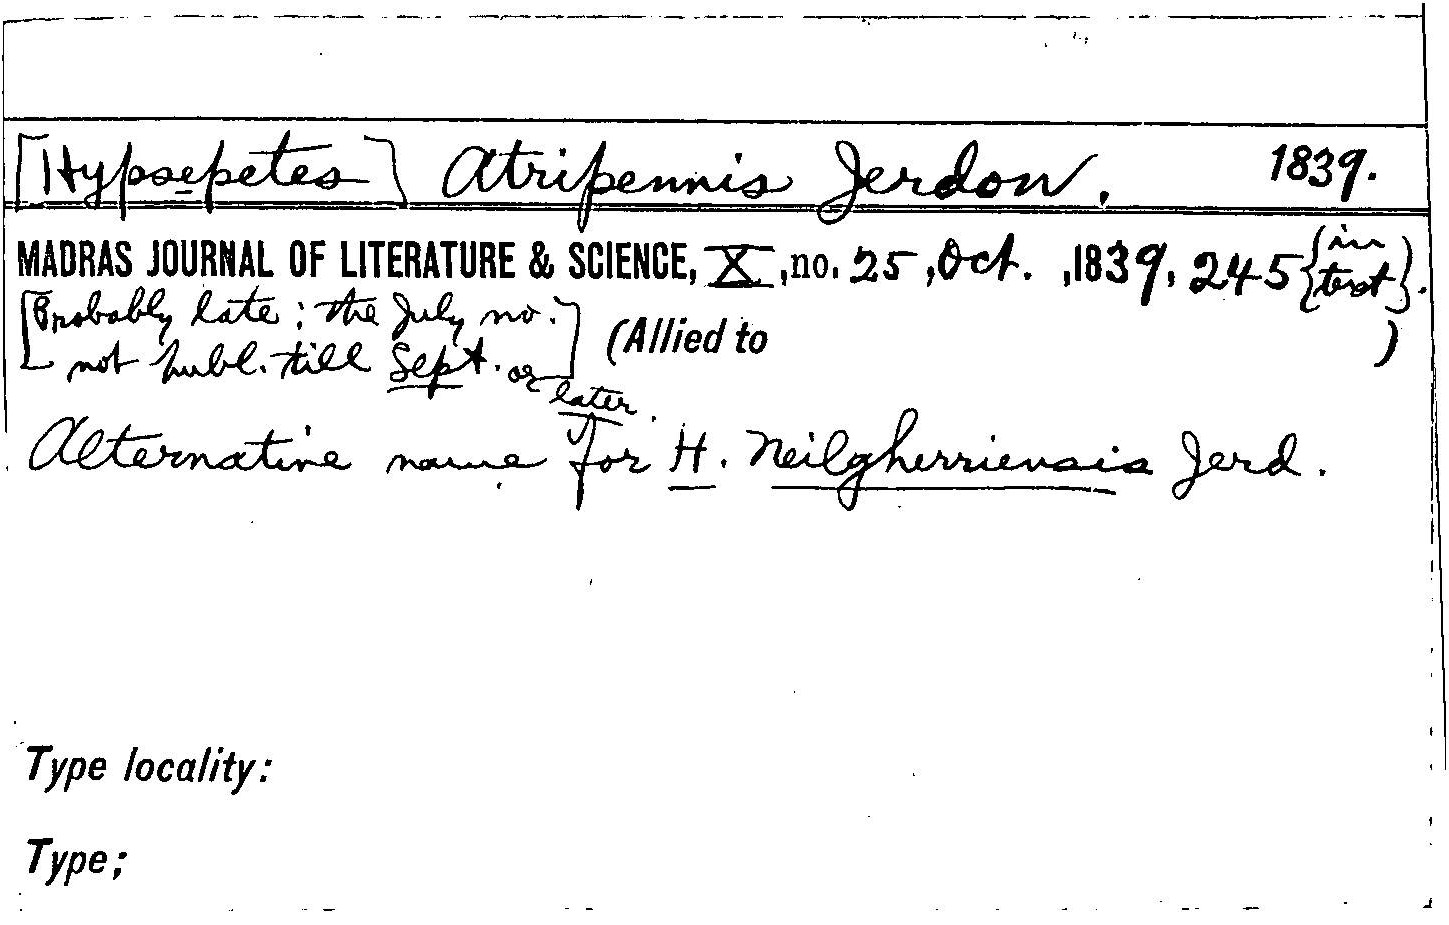 [Hypsepetes] Atripennis Jerdon. 1839.
MADRAS JOURNAL OF LITERATURE & SCIENCE, X, no. 25, Oct. ,1839, 245 {in text}.
[Probably late; the July no.
not publ. till Sept. or later.] (Allied to )
Alternative name for H. Neilgherriensis Jerd.
Type locality:
Type;